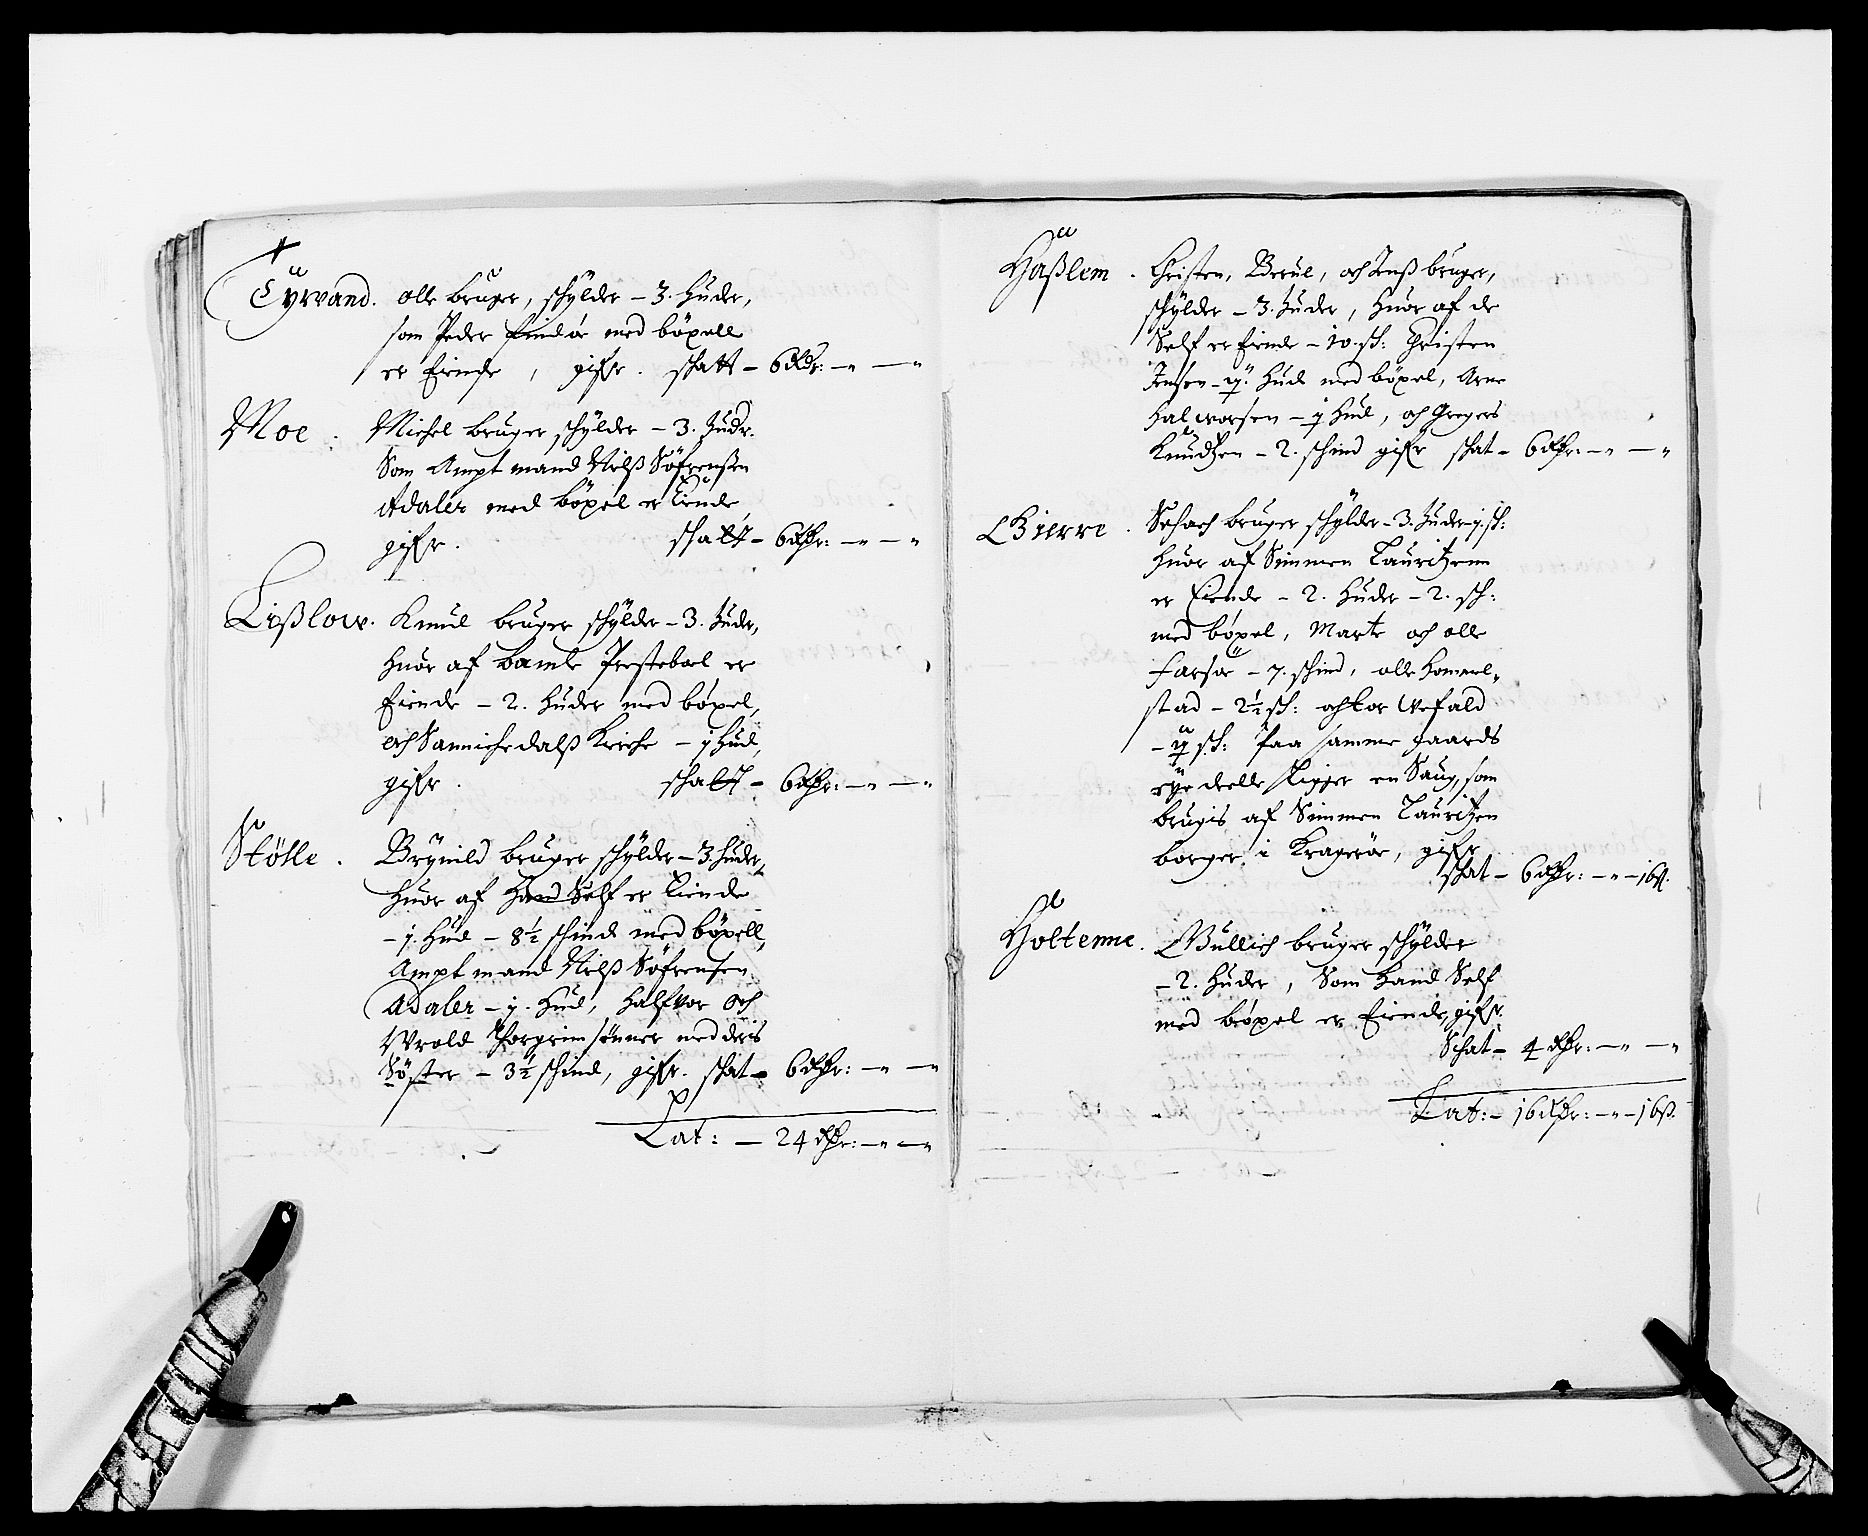 Tyrvand. olle bruger, schylder – 3. huder,
som Peder findør med böxell
er Eiende, gifr. schatt – 6 Rdr: – „ – „
Moe. Michel bruger schylder – 3. hudr.
Som Amptmand Nilß Söfrensen
Adaler med böxel er Eiende
gifr. schatt – 6 Rdr: – „ – „
Lißlow. Knud bruger schylder – 3. huder,
huor af bamle Presteboel er
Eiende – 2. huder med böxel,
och Sannichedalß Kirche – j hud,
gifr. schatt – 6 Rdr: – „ – „
Stölle. Brynild bruger schylder – 3. huder,
huor af hand Self er Eiende
– j. hud – 8½ schind med böxell,
Amptmand Nilß Söfrensen
Adaler – j. hud, halfvor och
Wrold Thorgrimsönner med deris
Söster – 3½ schind, gifr. schat – 6 Rdr: – „ – „
Lat: – 24 Rdr: – „ – „
Haßlem. Christen, Berul, och Jenß bruger,
schylder – 3. huder, huor af de
Self er Eiende – 10. sch: Christen
Jensen – ij. hud med böxel, Arne
halworsen – j hud, och Gregers
Knudtzen – 2. schind gifr schat – 6 Rdr: – „ – „
Bierre. Schach bruger schylder – 3. huder – j. sch:
huor af Simmen Lauritzenn
er Eiende – 2. huder – 2. sch:
med böxel, Marte och olle
Farsöe – 7. schind, olle hommel-
stad – 2½ sch: och tor Wefald
– ij sch: Paa samme gaards
eyedeelle ligger en Saug, som
brugis af Simmen Lauritzen
borger i Kragerøe, gifr
schat – 6 Rdr: – „ – 16 ß.
Holtenne. Gullich bruger schylder
– 2. huder, Som hand Self
med böxel er Eiende, gifr.
Schat – 4 Rdr: – „ – „
Lat: – 16 Rdr: – „ – 16 ß.